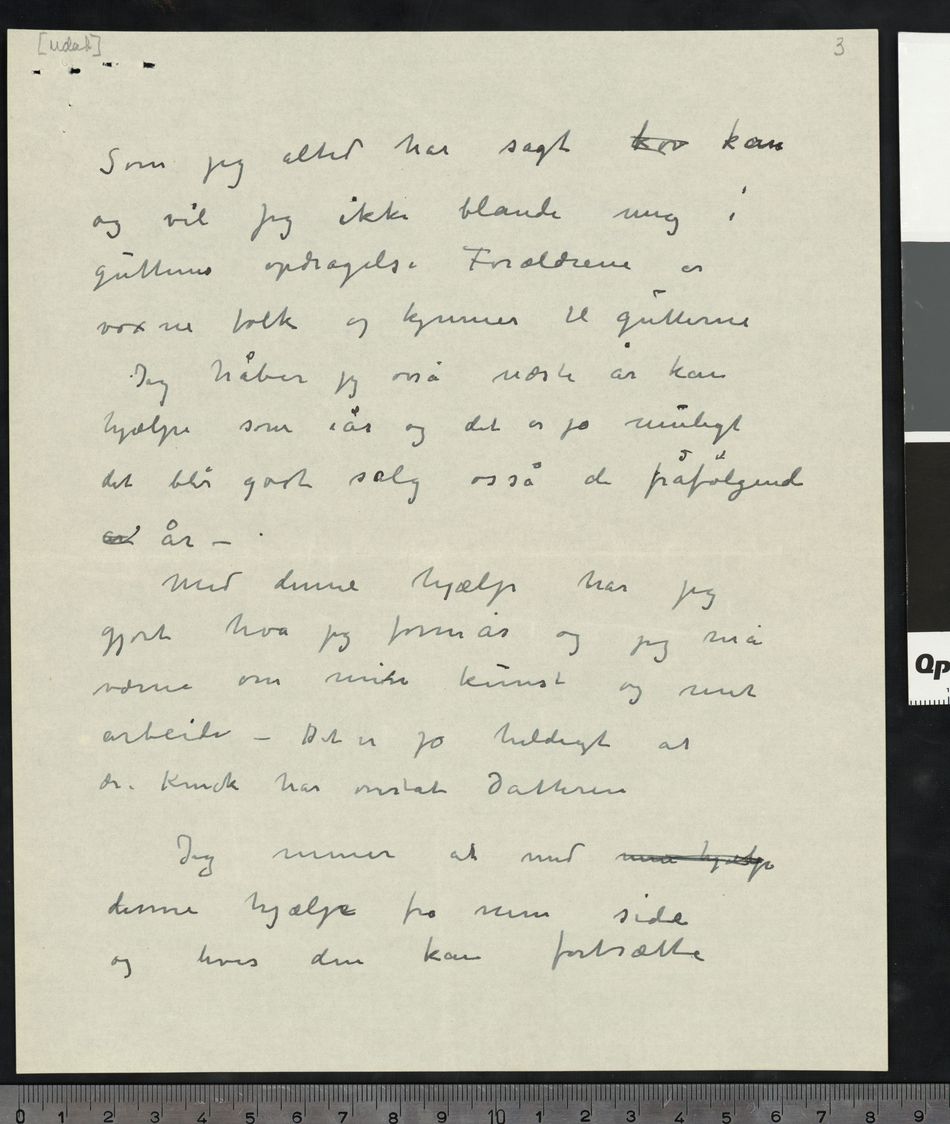 [udat]
3
Som jeg altid har sagt kan
og vil jeg ikke blande mig i
guttenes opdragelse Forældrene er
voxne folk og kjenner til gutterne
Jeg håber jeg også næste år kan
hjælpe som iår og det er jo muligt
det blir godt salg også de påfølgend
år –
Med denne hjælp har jeg
gjort hva jeg formår og jeg må
værne om min kunst og mit
arbeide – Det er jo heldigt at
dr. har Datteren
Jeg mener at med min hjælp
denne hjælp fra min side
og hvis den kan fortsætte
0 1 2 3 4 5 6 7 8 9 10 1 2 3 4 5 6 7 8 9
Qp